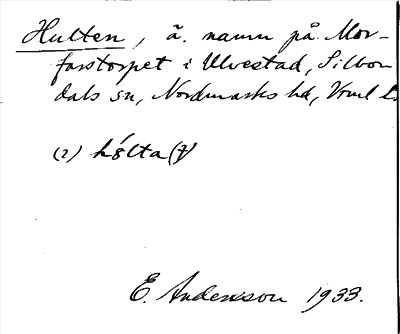 Hulten, ä. namn på Mor-
farstorpet i Ulvestad, Silbo-
dals sn, Nordmarks hd, Vrml l.
(2) hólta
E. Andersson 1933.